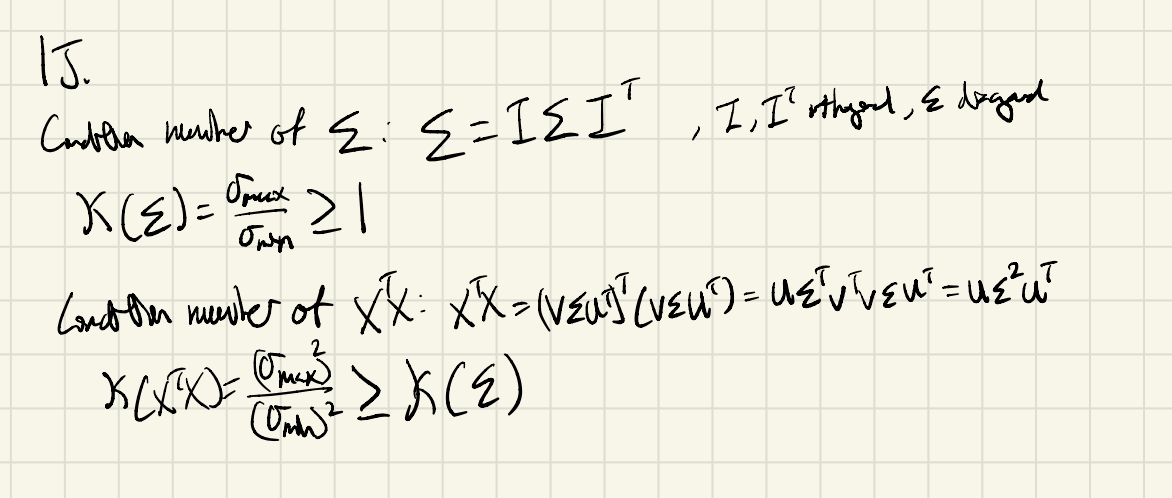 15.
Condition number of Σ: Σ = I Σ I^T , I, I^T orthogonal, Σ diagonal
K(Σ) = σmax / σmin ≥ 1
Condition number of X^T X: X^T X = (VΣU^T)^T (VΣU^T) = UΣ^T V^T VΣU^T = UΣ²U^T
K(X^T X) = (σmax)² / (σmin)² ≥ K(Σ)